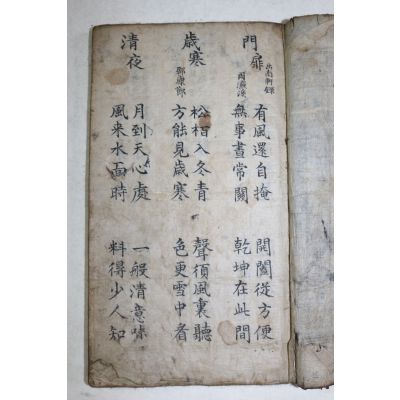 門扉
周濂溪
有風還自掩 開闔從方便
無事晝常關 乾坤在此間
歲寒
邵康節
松栢入冬青 聲須風裏聽
方能見歲寒 色更雪中看
清夜
月到天心處 一般清意味
風来水面時 料得少人知